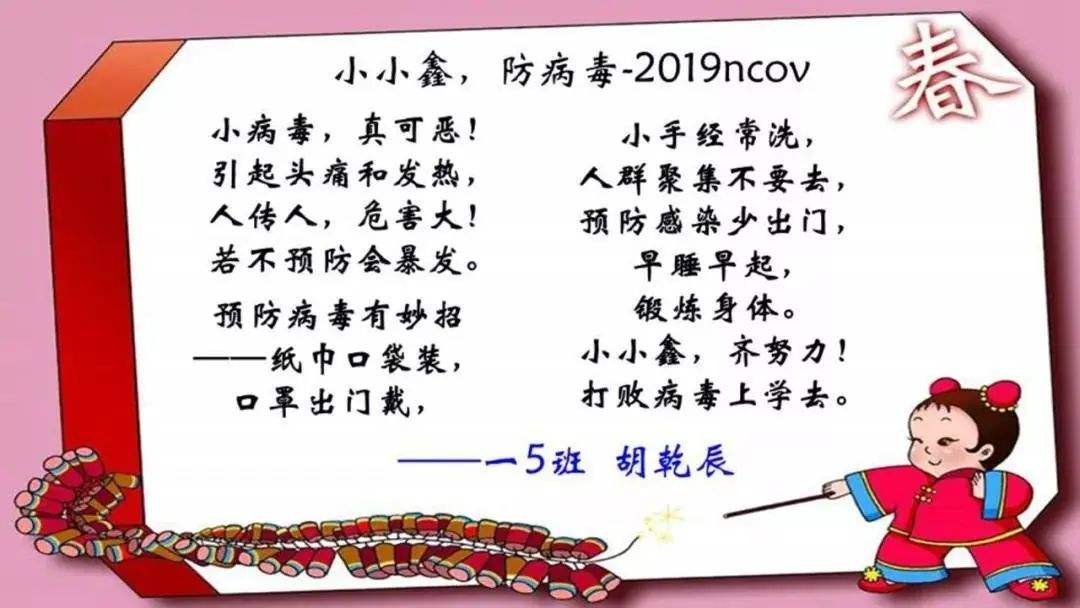 小小鑫，防病毒-2019ncov
春
小病毒，真可恶！
引起头痛和发热，
人传人，危害大！
若不预防会暴发。
预防病毒有妙招
——纸巾口袋装，
口罩出门戴，
小手经常洗，
人群聚集不要去，
预防感染少出门，
早睡早起，
锻炼身体。
小小鑫，齐努力！
打败病毒上学去。
——一5班 胡乾辰